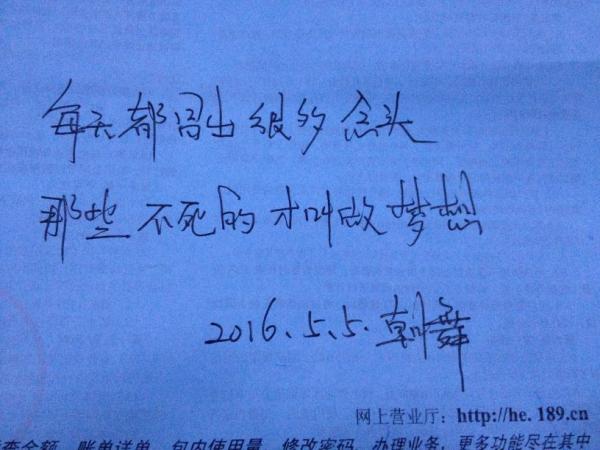 每天都冒出很多念头
那些不死的才叫做梦想
2016.5.5.朝舞
网上营业厅：http://he.189.cn
查余额、账单详单、包内使用量、修改密码、办理业务，更多功能尽在其中